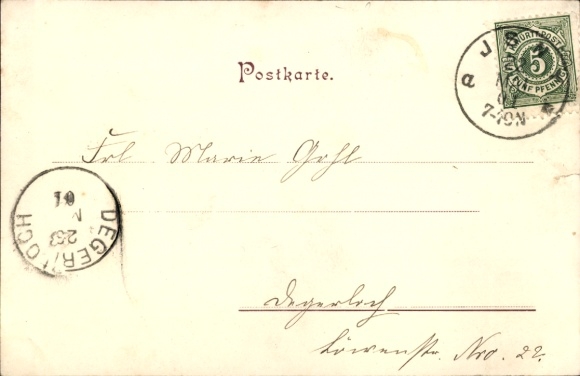 Postkarte.
WÜRTT. POST
5
FÜNF PFENNIG
7-10N
Frl Marie Gohl
DEGERLOCH
Degerloch
Löwenstr. Nro. 22.